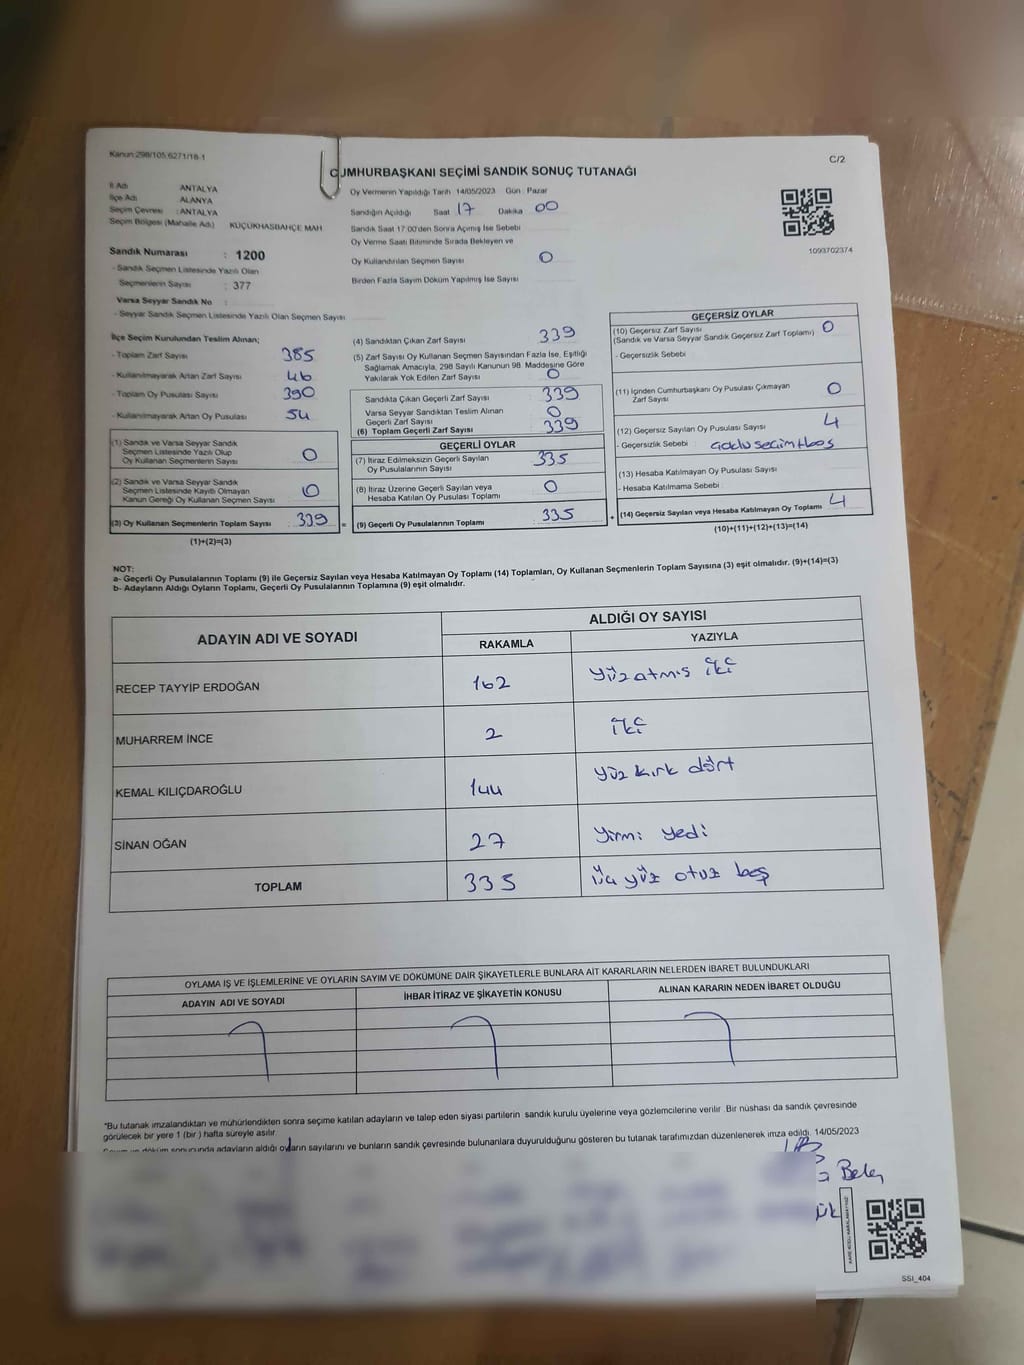 Kanun:298/105.6271/18-1
C/2
CUMHURBAŞKANI SEÇİMİ SANDIK SONUÇ TUTANAĞI
İl Adı ANTALYA
İlçe Adı ALANYA
Seçim Çevresi : ANTALYA
Seçim Bölgesi (Mahalle Adı) KÜÇÜKHASBAHÇE MAH
Oy Vermenin Yapıldığı Tarih 14/05/2023 Gün : Pazar
Sandığın Açıldığı Saat 17 Dakika 00
Sandık Saat 17.00'den Sonra Açımış İse Sebebi
Oy Verme Saati Bitiminde Sırada Bekleyen ve
Oy Kullandırılan Seçmen Sayısı 0
Birden Fazla Sayım Döküm Yapılmış İse Sayısı
1093702374
Sandık Numarası : 1200
- Sandık Seçmen Listesinde Yazılı Olan
Seçmenlerin Sayısı : 377
Varsa Seyyar Sandık No :
- Seyyar Sandık Seçmen Listesinde Yazılı Olan Seçmen Sayısı
İlçe Seçim Kurulundan Teslim Alınan;
- Toplam Zarf Sayısı 385
- Kullanılmayarak Artan Zarf Sayısı 46
- Toplam Oy Pusulası Sayısı 390
- Kullanılmayarak Artan Oy Pusulası 54
(1) Sandık ve Varsa Seyyar Sandık
Seçmen Listesinde Yazılı Olup
Oy Kullanan Seçmenlerin Sayısı 0
(2) Sandık ve Varsa Seyyar Sandık
Seçmen Listesinde Kayıtlı Olmayan
Kanun Gereği Oy Kullanan Seçmen Sayısı
(3) Oy Kullanan Seçmenlerin Toplam Sayısı : 339 =
(1)+(2)=(3)
(4) Sandıktan Çıkan Zarf Sayısı 339
(5) Zarf Sayısı Oy Kullanan Seçmen Sayısından Fazla İse, Eşitliği
Sağlamak Amacıyla, 298 Sayılı Kanunun 98. Maddesine Göre
Yakılarak Yok Edilen Zarf Sayısı 0
Sandıkta Çıkan Geçerli Zarf Sayısı 339
Varsa Seyyar Sandıktan Teslim Alınan
Geçerli Zarf Sayısı 0
(6) Toplam Geçerli Zarf Sayısı 339
GEÇERLİ OYLAR
(7) İtiraz Edilmeksizin Geçerli Sayılan
Oy Pusulalarının Sayısı 335
(8) İtiraz Üzerine Geçerli Sayılan veya
Hesaba Katılan Oy Pusulası Toplamı 0
(9) Geçerli Oy Pusulalarının Toplamı 335 +
GEÇERSİZ OYLAR
(10) Geçersiz Zarf Sayısı
(Sandık ve Varsa Seyyar Sandık Geçersiz Zarf Toplamı) 0
- Geçersizlik Sebebi
(11) İçinden Cumhurbaşkanı Oy Pusulası Çıkmayan
Zarf Sayısı 0
(12) Geçersiz Sayılan Oy Pusulası Sayısı 4
- Geçersizlik Sebebi :
(13) Hesaba Katılmayan Oy Pusulası Sayısı
- Hesaba Katılmama Sebebi :
(14) Geçersiz Sayılan veya Hesaba Katılmayan Oy Toplamı 4
(10)+(11)+(12)+(13)=(14)
NOT:
a- Geçerli Oy Pusulalarının Toplamı (9) ile Geçersiz Sayılan veya Hesaba Katılmayan Oy Toplamı (14) Toplamları, Oy Kullanan Seçmenlerin Toplam Sayısına (3) eşit olmalıdır. (9)+(14)=(3)
b- Adayların Aldığı Oyların Toplamı, Geçerli Oy Pusulalarının Toplamına (9) eşit olmalıdır.
ADAYIN ADI VE SOYADI
ALDIĞI OY SAYISI
RAKAMLA YAZIYLA
RECEP TAYYİP ERDOĞAN 162 Yüzatmış iki
MUHARREM İNCE 2 iki
KEMAL KILIÇDAROĞLU 144 Yüz kırk dört
SİNAN OĞAN 27 Yirmi yedi
TOPLAM 335 Üç yüz otuz beş
OYLAMA İŞ VE İŞLEMLERİNE VE OYLARIN SAYIM VE DÖKÜMÜNE DAİR ŞİKAYETLERLE BUNLARA AİT KARARLARIN NELERDEN İBARET BULUNDUKLARI
ADAYIN ADI VE SOYADI İHBAR İTİRAZ VE ŞİKAYETİN KONUSU ALINAN KARARIN NEDEN İBARET OLDUĞU
*Bu tutanak imzalandıktan ve mühürlendikten sonra seçime katılan adayların ve talep eden siyasi partilerin sandık kurulu üyelerine veya gözlemcilerine verilir. Bir nüshası da sandık çevresinde
görülecek bir yere 1 (bir) hafta süreyle asılır.
Sayım ve döküm sonucunda adayların aldığı oyların sayılarını ve bunların sandık çevresinde bulunanlara duyurulduğunu gösteren bu tutanak tarafımızdan düzenlenerek imza edildi. 14/05/2023
SSI_404